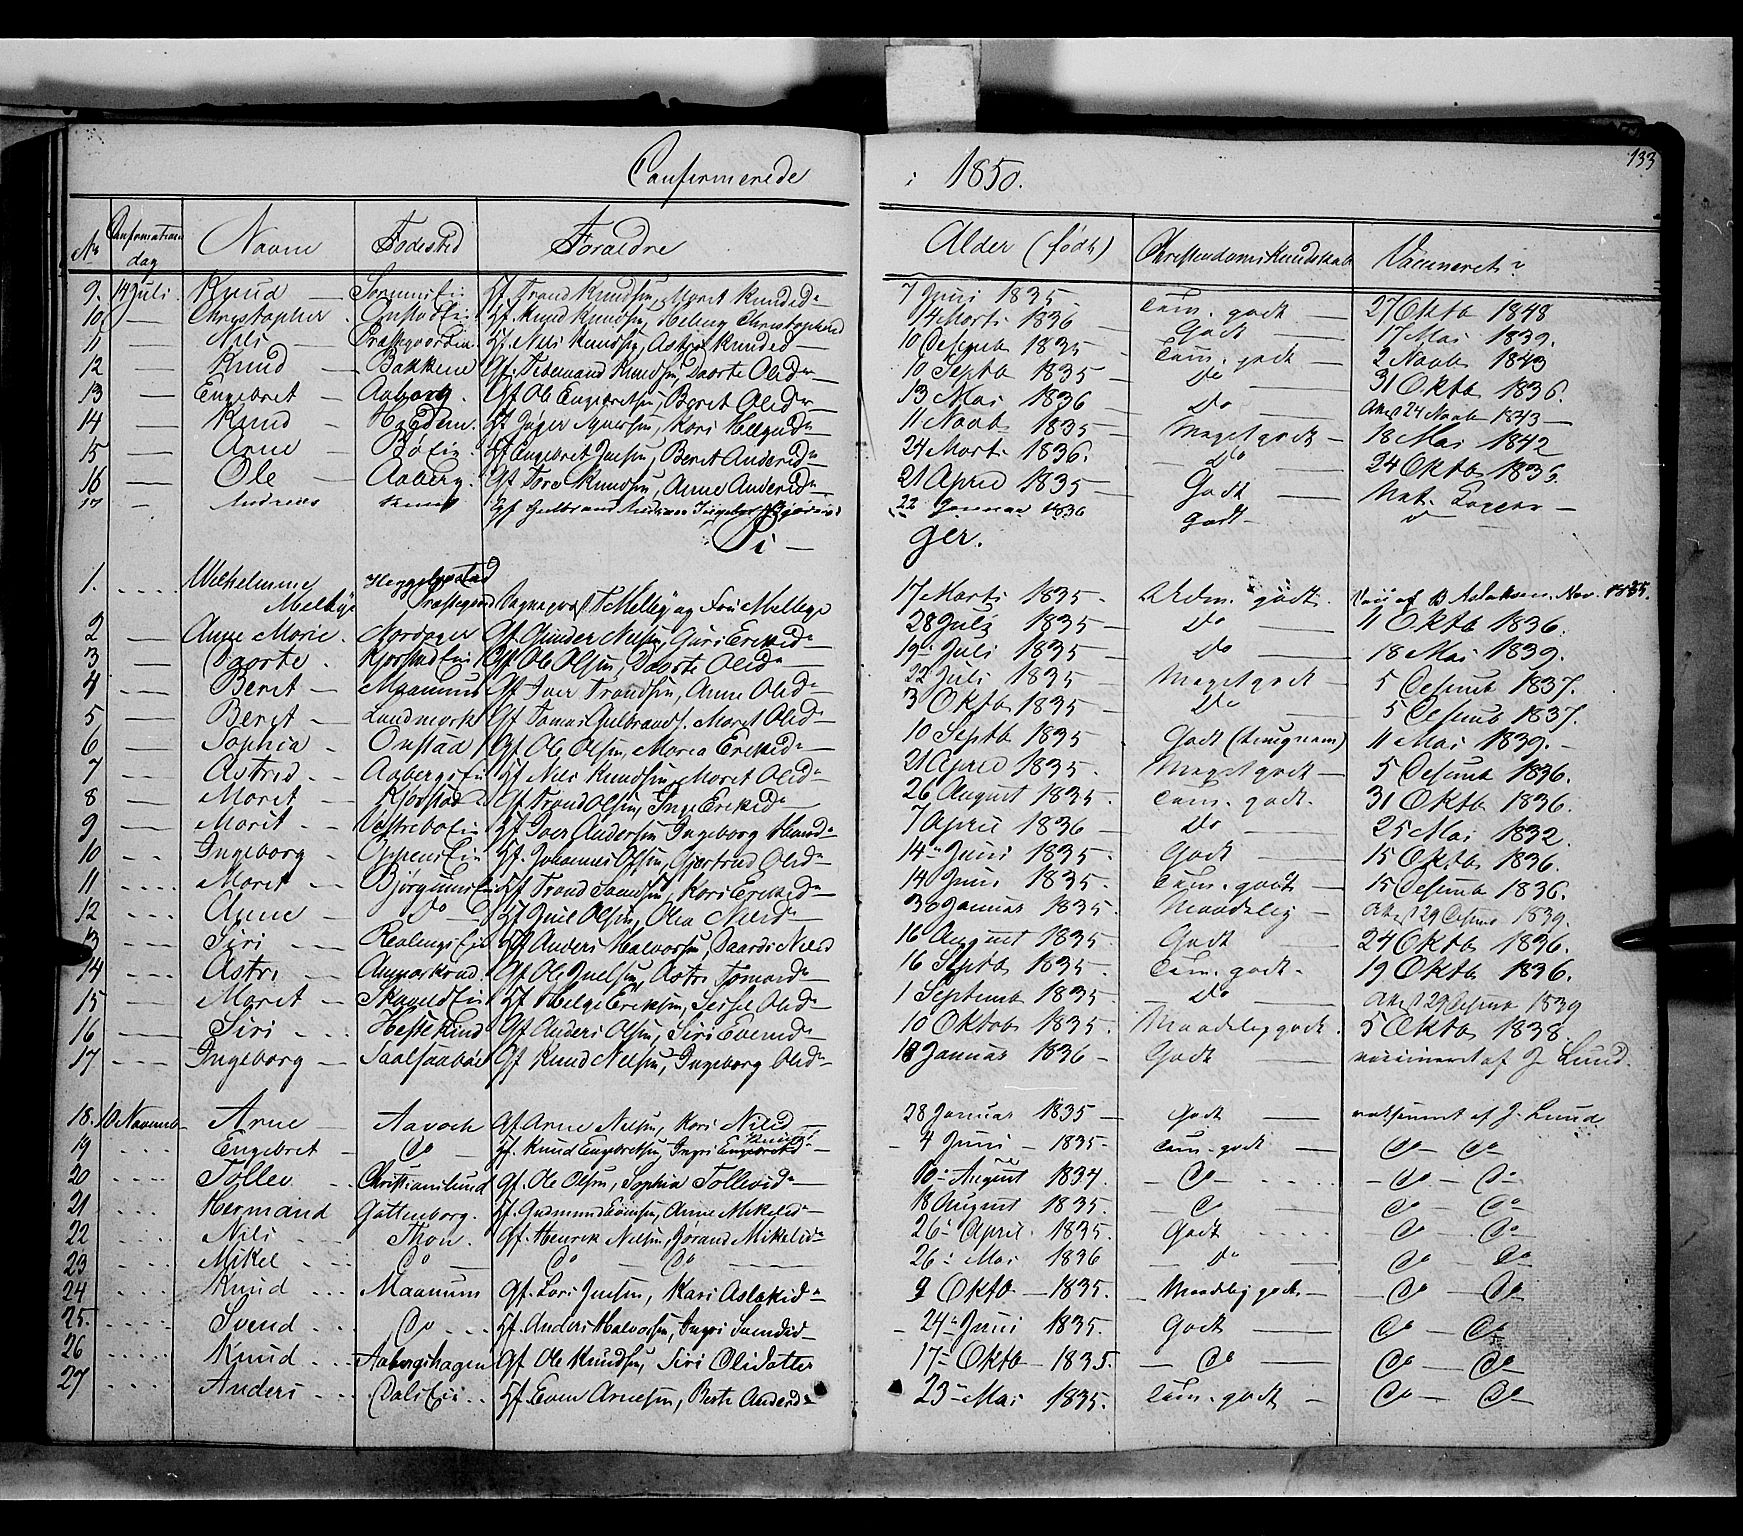 133
Confirmerede i 1850.
No Confirmations dag Navne Fodested Foraeldre Alder (født) Christendoms Kundskab Vaccineret?
9. 14 Juli. Knud Hf. Trond Knudsen, Maret Knudsd. 7 Juni 1835 Tem. godt 27 Oktb 1848
10. Christopher Onstad Ei Hf. Knud Knudsen, Christophersd 14 Marts 1836 Godt 17 Mai 1839.
11 Nils Præstgaards Ei Hf. Nils Knudsen, Astri Knudsd 10 Desemb 1835 Tem. godt 2 Novb 1843
12 Knud Bakkene Gf. Tidemand Knudsen, Daarte Olsd. 10 Septb 1835 Do 31 Oktb 1836.
13 Engebret Aaberg. Gf Ole Engebretsen, Beret Olsd. 13 Mai 1836 Do 24 Novb 1843
14 Knud Hf. Kari Helgesd. 11 Novb 1835 Megetgodt 18 Mai 1842
15 Arne Bø Ei Hf Engebret Juelsen, Beret Andersd. 24 Marts 1836. Do 24 Oktb 1835.
16 Ole Aaberg. Gf Tore Knudsen, Anne Andersd. 21 April 1835 Godt Nat. Kopper
17 Andreas Gf Gulbrand 22 Januar 1836 Godt
Pi - ger.
1. Wilhelmine Melbye Heggelystad Præstegaard T Melbye og Fru Melbye 17 Marts 1835 Udm. godt. Vacc af B Aslaksen. Nov. 1835.
2 Anne Marie. Nordager Gf. Gunder Nelsen, Guri Eriksd. 28 Juli 1835 Do 11 Oktb 1836.
3 Daarte. Kjørstad Ei Gf. Ole Olsen, Daarte Olsd. 19 Juli 1835 Do 18 Mai 1839.
4 Beret Maanum Gf. Iver Trondsen, Anne Olsd. 22 Juli 1835 Megetgodt 5 Desemb 1837.
5 Beret Landmark Gf Tomas Gulbrands. Maret Olsd. 3 Oktb 1835 Do 5 Desemb 1837.
6 Sophia Onstad Gf. Ole Olsen, Maria Eriksd. 10 Septb 1835 Godt 11 Mai 1839.
7 Astrid Aabergs Ei Hf Nils Knudsen, Maret Olsd. 21 April 1835. Megetgodt 5 Desemb 1836.
8 Maret Kjørstad Gf. Trond Olsen, Inge Eriksd. 26 August 1835 Tem. godt. 31 Oktb 1836.
9 Marit Vestrebø Ei Hf. Iver Andersen Ingeborg 7 April 1836 Do 25 Mai 1832.
10 Ingeborg Oppens Ei Hf. Johannes Olsen, Gjertrud Olsd. 14 Juni 1835. Godt 15 Oktb 1836.
11 Maret Bjørgums Ei Hf Trond Kari Eriksd. 14 Juni 1835. Tem. godt 15 Desemb 1836.
12 Anne Do Hf Juel Olsen, Olia Nelsd. 30 Januar 1835. Maadelig 29 Desemb 1839.
13 Siri Ei Hf Anders Halvorsen, Daardi Nilsd 16 August 1835 Godt 24 Oktb 1836.
14 Astri Gf. Ole Juelsen, Astri Tomasd. 16 Septb 1835. Tem. godt 19 Oktb 1836.
15 Maret Ei Hf Helge Eriksen, Sessel Olsd. 1 Septemb 1835 Do 29 Desemb 1839
16 Siri Gf Anders Olsen, Siri Evensd. 10 Oktob 1835. Maadeliggodt. 5 Oktb 1838.
17 Ingeborg Gf Knud Nelsen, Ingeborg Olsd. 18 Januar 1836 Godt vaccineret af J Lund.
18. 10 Novemb Arne Aavoch Gf Arne Nelsen, Kari Nilsd 28 Januar 1835 Godt vaksineret af J. Lund
19 Engebret Do Hf. Knud Engebretsen, Ingri Engebretsd. 4 Juni 1835. Tem. godt Do Do
20 Tollev Christianslund Gf. Ole Olsen, Sophia Tollevsd. 10 August 1834. Do Do Do
21 Hermand Gottenborg. Hf. Gudmund Evensen, Anne Mikelsd. 18 August 1835. Do Do Do
22 Nils Thon. Gf. Henrik Nelsen, Jørand Mikelsd. 26 April 1835. Godt Do Do
23 Mikel Do Do Do 26 Mai 1836 Do Do Do
24 Knud Maanum Gf. Lars Juelsen, Kari Aslaksd. 9 Oktb 1835. Maadelig godt Do Do
25. Svend Do Hf. Anders Halvorsen, Ingri Svendsd 24 Juni 1835. Godt Do Do
26 Knud Aabergshagen Gf Ole Knudsen, Siri Olsdatter 17 Oktb 1835. Do Do Do
27 Anders Dals Ei Hf. Even Arnesen, Berte Andersd. 23 Mai 1835. Tem. godt Do Do